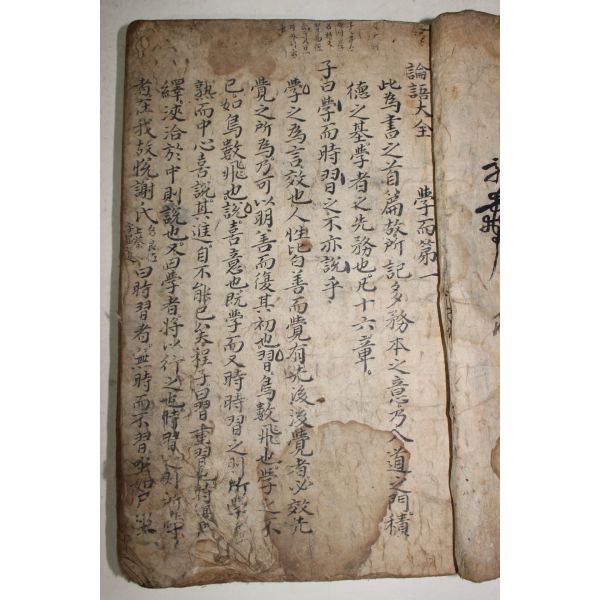 論語大全
學而第一
此為書之首篇故所記多務本之意乃入道之門積
德之基學者之先務也凡十六章
子曰學而時習之不亦說乎
學之為言效也人性皆善而覺有先後後覺者必效先
覺之所為乃可以明善而復其初也習鳥數飛也學之不
已如鳥數飛也說喜意也既學而又時時習之則所學
熟而中心喜說其進自不能已矣程子曰習重習也時復思
繹浹洽於中則說也又曰學者將以行之也時習之則所學
者在我故悅謝氏曰時習者無時而不習坐如尸